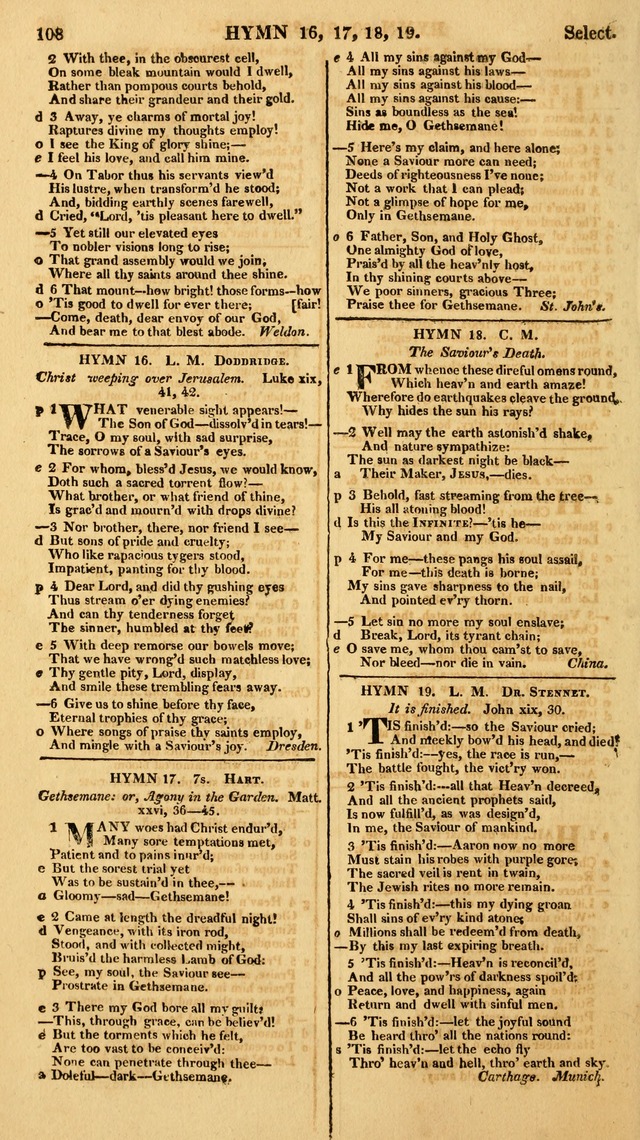 108 HYMN 16, 17, 18, 19. Select.
2 With thee, in the obscurest cell,
On some bleak mountain would I dwell,
Rather than pompous courts behold,
And share their grandeur and their gold.
d 3 Away, ye charms of mortal joy!
Raptures divine my thoughts employ!
o I see the King of glory shine;—
e I feel his love, and call him mine.
—4 On Tabor thus his servants view'd
His lustre, when transform'd he stood;
And, bidding earthly scenes farewell,
d Cried, "Lord, 'tis pleasant here to dwell."
—5 Yet still our elevated eyes
To nobler visions long to rise;
o That grand assembly would we join,
Where all thy saints around thee shine.
d 6 That mount—how bright! those forms—how
o 'Tis good to dwell for ever there; [fair!
—Come, death, dear envoy of our God,
And bear me to that blest abode. Weldon.
HYMN 16. L. M. DODDRIDGE.
Christ weeping over Jerusalem. Luke xix,
41, 42.
p 1 WHAT venerable sight appears!—
The Son of God—dissolv'd in tears!—
Trace, O my soul, with sad surprise,
The sorrows of a Saviour's eyes.
e 2 For whom, bless'd Jesus, we would know,
Doth such a sacred torrent flow?—
What brother, or what friend of thine,
Is grac'd and mourn'd with drops divine?
—3 Nor brother, there, nor friend I see—
d But sons of pride and cruelty;
Who like rapacious tygers stood,
Impatient, panting for thy blood.
p 4 Dear Lord, and did thy gushing eyes
Thus stream o'er dying enemies?
And can thy tenderness forget
The sinner, humbled at thy feet?
e 5 With deep remorse our bowels move;
That we have wrong'd such matchless love;
e Thy gentle pity, Lord, display,
And smile these trembling fears away.
—6 Give us to shine before thy face,
Eternal trophies of thy grace;
o Where songs of praise thy saints employ,
And mingle with a Saviour's joy. Dresden.
HYMN 17. 7s. HART.
Gethsemane: or, Agony in the Garden. Matt.
xxvi, 36—45.
1 MANY woes had Christ endur'd,
Many sore temptations met,
Patient and to pains inur'd;
e But the sorest trial yet
Was to be sustain'd in thee,—
a Gloomy—sad—Gethsemane!
e 2 Came at length the dreadful night!
d Vengeance, with its iron rod,
Stood, and with collected might,
Bruis'd the harmless Lamb of God:
p See, my soul, the Saviour see—
Prostrate in Gethsemane.
e 3 There my God bore all my guilt;
—This, through grace, can be believ'd!
d But the torments which he felt,
Are too vast to be conceiv'd:
None can penetrate through thee—
a Doleful—dark—Gethsemane.
e 4 All my sins against my God—
All my sins against his laws—
All my sins against his blood—
All my sins against his cause:—
Sins as boundless as the sea!
Hide me, O Gethsemane!
—5 Here's my claim, and here alone;
None a Saviour more can need;
Deeds of righteousness I've none;
Not a work that I can plead;
Not a glimpse of hope for me,
Only in Gethsemane.
o 6 Father, Son, and Holy Ghost,
One almighty God of love,
Prais'd by all the heav'nly host,
In thy shining courts above—
We poor sinners, gracious Three;
Praise thee for Gethsemane. St. John's.
HYMN 18. C. M.
The Saviour's Death.
e 1 FROM whence these direful omens round,
Which heav'n and earth amaze!
Wherefore do earthquakes cleave the ground,
Why hides the sun his rays?
—2 Well may the earth astonish'd shake,
And nature sympathize:
The sun as darkest night be black—
a Their Maker, JESUS,—dies.
p 3 Behold, fast streaming from the tree—
His all atoning blood!
d Is this the INFINITE?—'tis he—
My Saviour and my God.
p 4 For me—these pangs his soul assail,
For me—this death is borne;
My sins gave sharpness to the nail,
And pointed ev'ry thorn.
—5 Let sin no more my soul enslave;
d Break, Lord, its tyrant chain;
e O save me, whom thou cam'st to save,
Nor bleed—nor die in vain. China.
HYMN 19. L. M. DR. STENNET.
It is finished. John xix, 30.
1 'TIS finish'd:—so the Saviour cried;
And meekly bow'd his head, and died:
'Tis finish'd:—yes, the race is run,—
The battle fought, the vict'ry won.
2 'Tis finish'd:—all that Heav'n decreed,
And all the ancient prophets said,
Is now fulfill'd, as was design'd,
In me, the Saviour of mankind.
3 'Tis finish'd:—Aaron now no more
Must stain his robes with purple gore;
The sacred veil is rent in twain,
The Jewish rites no more remain.
4 'Tis finish'd:—this my dying groan
Shall sins of ev'ry kind atone;
o Millions shall be redeem'd from death,
—By this my last expiring breath.
5 'Tis finish'd:—Heav'n is reconcil'd,
And all the pow'rs of darkness spoil'd;
o Peace, love, and happiness, again
Return and dwell with sinful men.
—6 'Tis finish'd:—let the joyful sound
Be heard thro' all the nations round:
s 'Tis finish'd:—let the echo fly
Thro' heav'n and hell, thro' earth and sky.
Carthage. Munich.